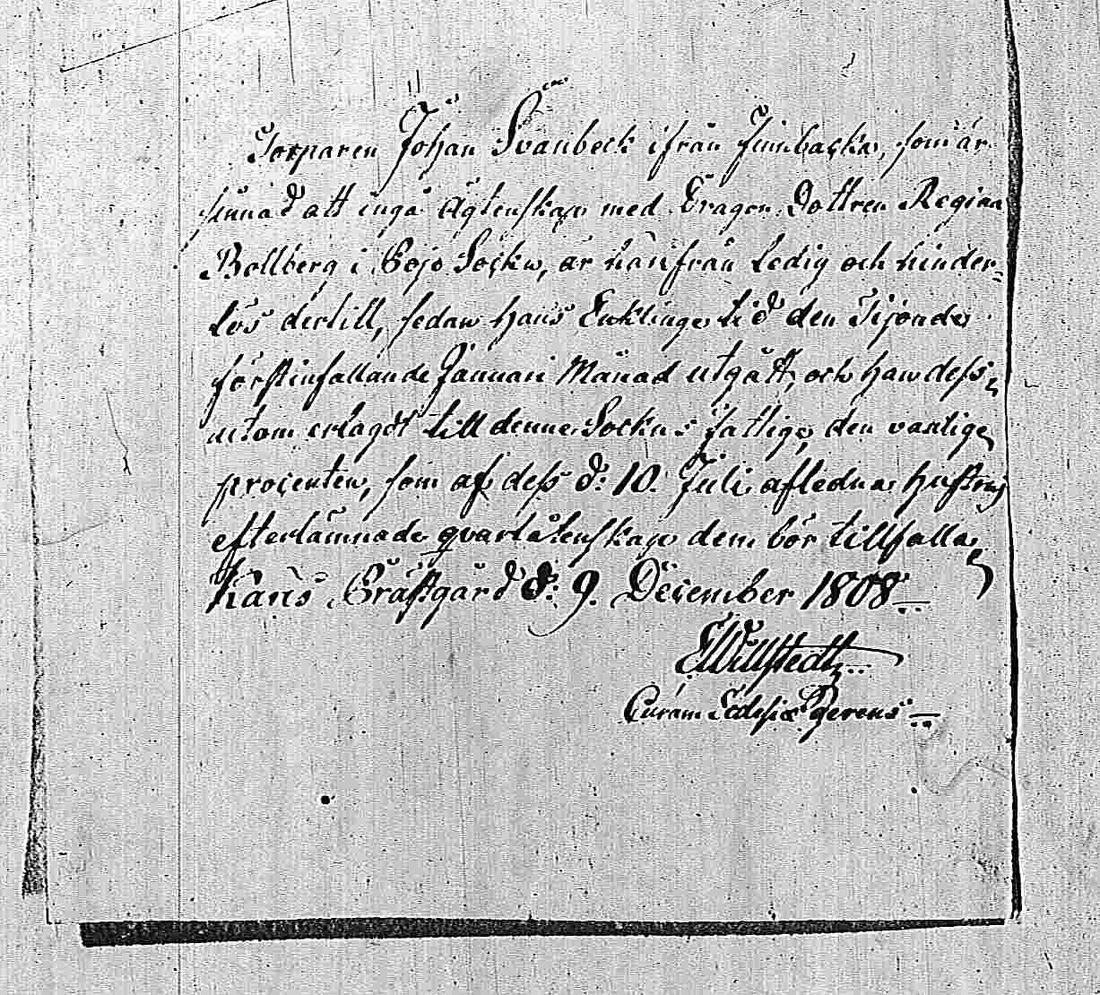 Torparen Johan Svanbeck ifrån Finnbacka, som är
sinnad att ingå Ägtenskap med Dragon Dottren Regina
Bollberg i Pojo Sockn, är härifrån Ledig och hinder-
lös dertill, sedan hans Enklinge tid den
förstinfallande Januari Månad utgått, och han dess-
utom erlagdt till denna Sockns fattige, den vanlige
procenten, som af dess d: 10. Juli afledna hustrus
efterlämnade qvarlåtenskap dem bör tillfalla,
Karis Prästgård d: 9. December 1808
EWillstedt
Curam Eclesiæ gerens